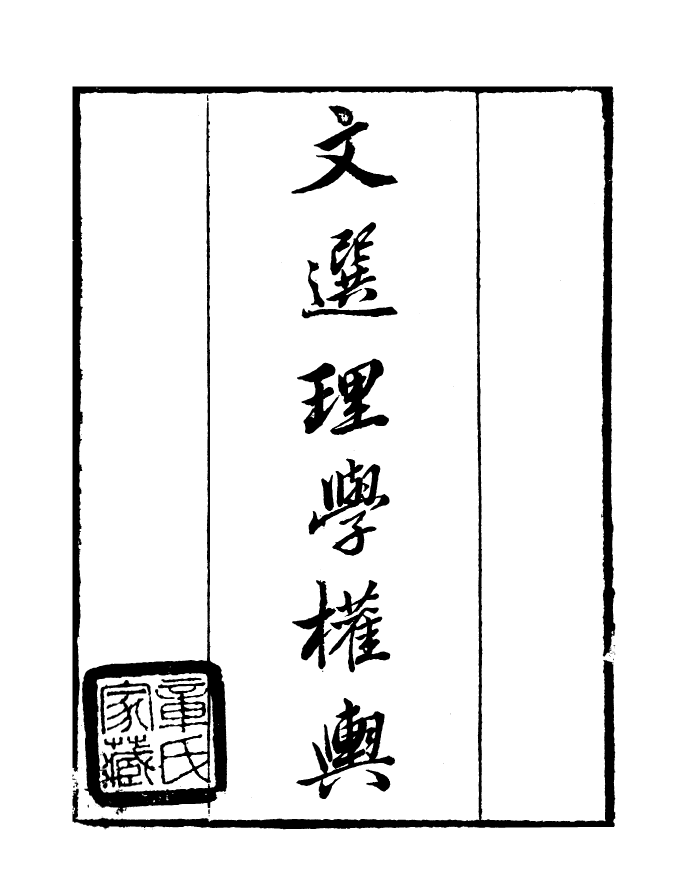 文選理學權輿
章氏
家藏